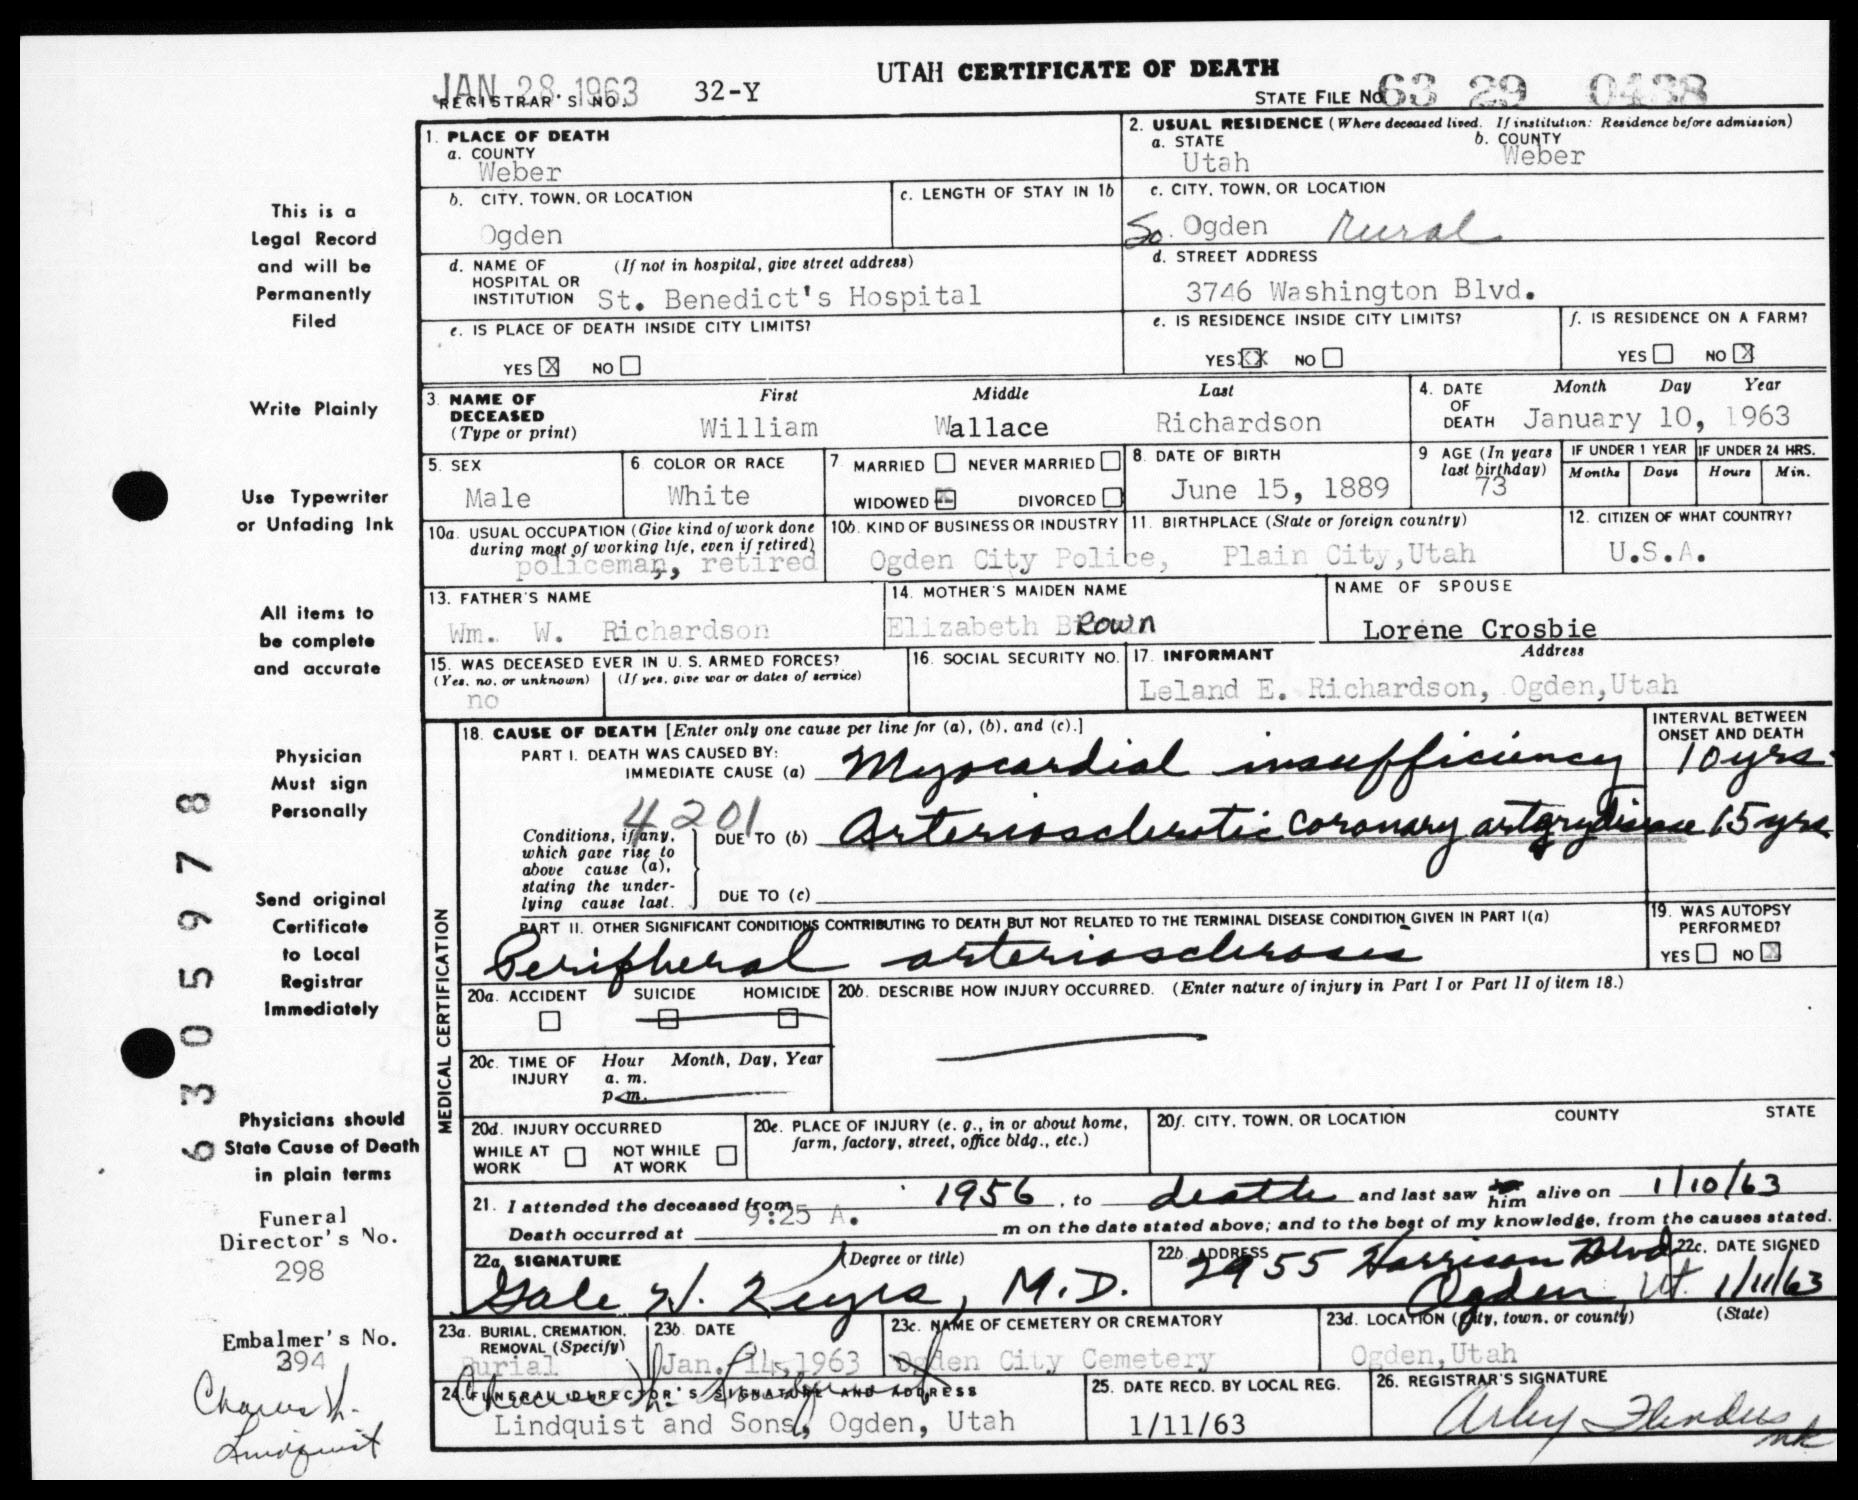 UTAH CERTIFICATE OF DEATH
JAN 28 1963
REGISTRAR'S NO. 32-Y
STATE FILE NO. 63 29 0438
1. PLACE OF DEATH
a. COUNTY
Weber
2. USUAL RESIDENCE (Where deceased lived. If institution: Residence before admission)
a. STATE b. COUNTY
Utah Weber
b. CITY, TOWN, OR LOCATION
Ogden
c. LENGTH OF STAY IN 1b
c. CITY, TOWN, OR LOCATION
So. Ogden Rural
d. NAME OF HOSPITAL OR INSTITUTION (If not in hospital, give street address)
St. Benedict's Hospital
d. STREET ADDRESS
3746 Washington Blvd.
e. IS PLACE OF DEATH INSIDE CITY LIMITS?
YES X NO
e. IS RESIDENCE INSIDE CITY LIMITS?
YES XX NO
f. IS RESIDENCE ON A FARM?
YES NO X
3. NAME OF DECEASED (Type or print)
First Middle Last
William Wallace Richardson
4. DATE OF DEATH Month Day Year
January 10, 1963
5. SEX
Male
6. COLOR OR RACE
White
7. MARRIED NEVER MARRIED
WIDOWED X DIVORCED
8. DATE OF BIRTH
June 15, 1889
9 AGE (In years last birthday)
73
IF UNDER 1 YEAR
Months Days
IF UNDER 24 HRS.
Hours Min.
10a. USUAL OCCUPATION (Give kind of work done during most of working life, even if retired)
policeman, retired
10b. KIND OF BUSINESS OR INDUSTRY
Ogden City Police,
11. BIRTHPLACE (State or foreign country)
Plain City, Utah
12. CITIZEN OF WHAT COUNTRY?
U.S.A.
13. FATHER'S NAME
Wm. W. Richardson
14. MOTHER'S MAIDEN NAME
Elizabeth BRown
NAME OF SPOUSE
Lorene Crosbie
15. WAS DECEASED EVER IN U. S. ARMED FORCES?
(Yes, no, or unknown) (If yes, give war or dates of service)
no
16. SOCIAL SECURITY NO.
17. INFORMANT Address
Leland E. Richardson, Ogden, Utah
MEDICAL CERTIFICATION
18. CAUSE OF DEATH [Enter only one cause per line for (a), (b), and (c).]
INTERVAL BETWEEN ONSET AND DEATH
PART I. DEATH WAS CAUSED BY:
IMMEDIATE CAUSE (a) Myocardial insufficiency 10 yrs.
4201
Conditions, if any, which gave rise to above cause (a), stating the underlying cause last.
DUE TO (b) Arteriosclerotic coronary artery disease 15 yrs.
DUE TO (c)
PART II. OTHER SIGNIFICANT CONDITIONS CONTRIBUTING TO DEATH BUT NOT RELATED TO THE TERMINAL DISEASE CONDITION GIVEN IN PART I(a)
Peripheral arteriosclerosis
19. WAS AUTOPSY PERFORMED?
YES NO X
20a. ACCIDENT SUICIDE HOMICIDE
20b. DESCRIBE HOW INJURY OCCURRED. (Enter nature of injury in Part I or Part II of item 18.)
20c. TIME OF INJURY Hour Month, Day, Year
a. m.
p. m.
20d. INJURY OCCURRED
WHILE AT WORK NOT WHILE AT WORK
20e. PLACE OF INJURY (e. g., in or about home, farm, factory, street, office bldg., etc.)
20f. CITY, TOWN, OR LOCATION COUNTY STATE
21. I attended the deceased from 1956, to death and last saw him alive on 1/10/63
Death occurred at 9:25 A. m on the date stated above; and to the best of my knowledge, from the causes stated.
22a. SIGNATURE (Degree or title)
Gale W. Keyes, M.D.
22b. ADDRESS
2955 Harrison Blvd
Ogden, Ut.
22c. DATE SIGNED
1/11/63
23a. BURIAL, CREMATION, REMOVAL (Specify)
Burial
23b. DATE
Jan. 14, 1963
23c. NAME OF CEMETERY OR CREMATORY
Ogden City Cemetery
23d. LOCATION (City, town, or county) (State)
Ogden, Utah
24. FUNERAL DIRECTOR'S SIGNATURE AND ADDRESS
Charles H. Lindquist
Lindquist and Sons, Ogden, Utah
25. DATE RECD. BY LOCAL REG.
1/11/63
26. REGISTRAR'S SIGNATURE
Arley Flinders
mk
This is a
Legal Record
and will be
Permanently
Filed
Write Plainly
Use Typewriter
or Unfading Ink
All items to
be complete
and accurate
Physician
Must sign
Personally
Send original
Certificate
to Local
Registrar
Immediately
Physicians should
State Cause of Death
in plain terms
Funeral
Director's No.
298
Embalmer's No.
394
Charles H.
Lindquist
6305978